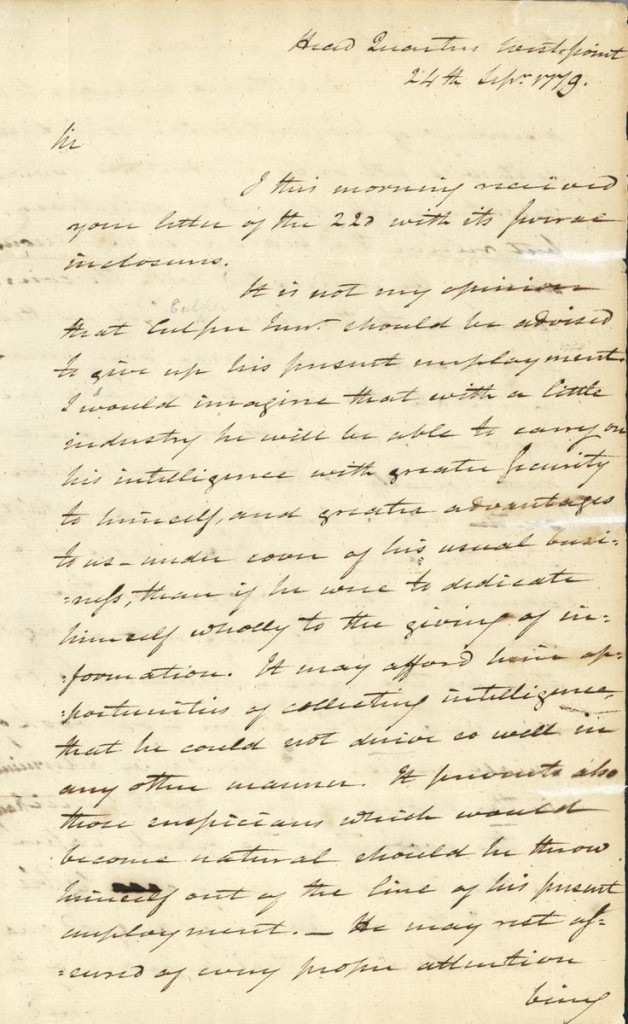 Head Quarters West-point
24th Sepr. 1779.
Sir
I this morning received
your letter of the 22d with its several
inclosures.
It is not my opinion
Culper
that Culper Junr. should be advised
to give up his present employment.
I would imagine that with a little
industry he will be able to carry on
his intelligence with greater security
to himself, and greater advantages
to us – under cover of his usual busi-
-ness, than if he were to dedicate
himself wholly to the giving of in-
-formation. It may afford him op-
-portunities of collecting intelligence,
that he could not derive so well in
any other manner. It prevents also
those suspicions which would
become natural should he throw
himself out of the line of his present
employment. – He may rest as-
-sured of every proper attention
being